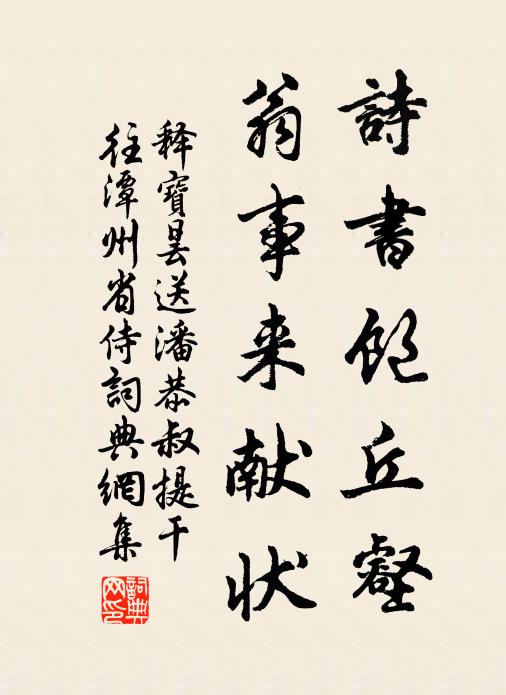 詩書飽丘壑
翁事来献状
释寶曇送潘恭叔提干
往潭州省侍詞典網集
詞典网印